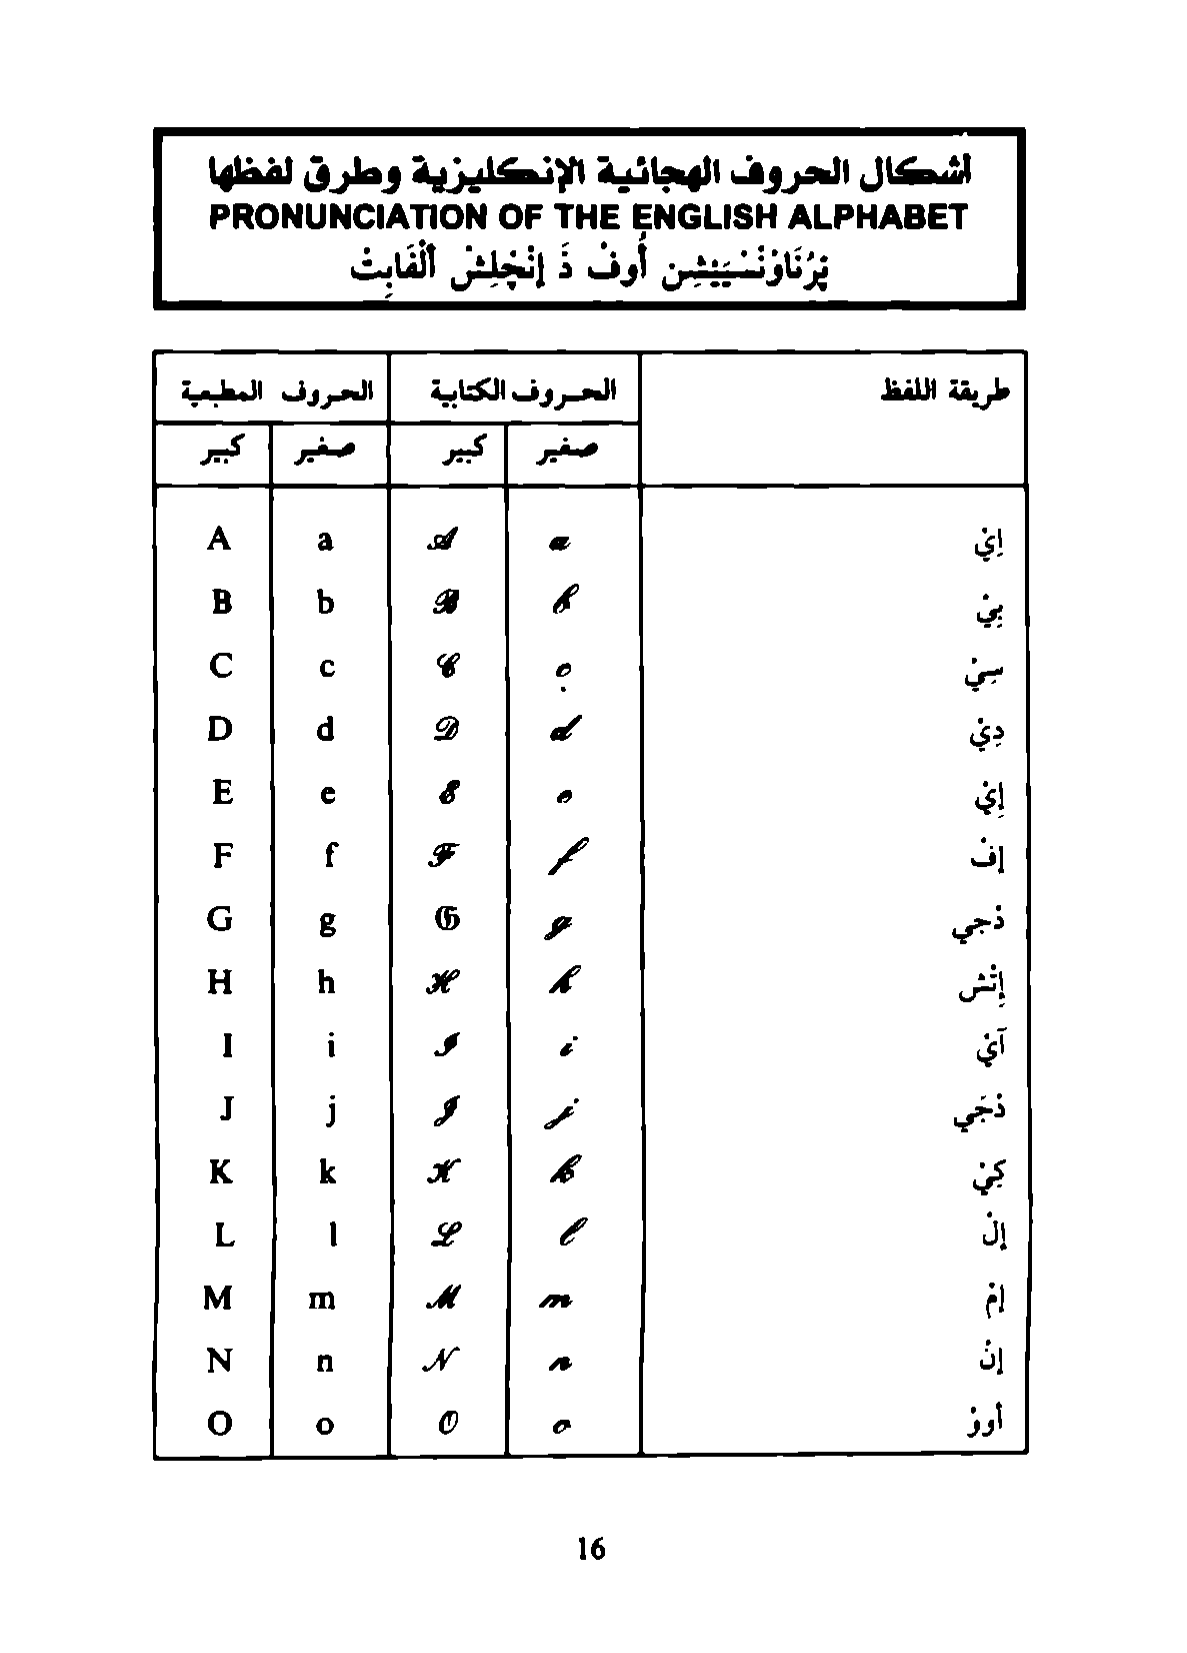 أشكال الحروف الهجائية الإنكليزية وطرق لفظها
PRONUNCIATION OF THE ENGLISH ALPHABET
پْرُنَاوْنْسْيَيْشِن أُوفْ ذَ إنْچْلِشْ ألْفَابِتْ
الحروف المطبعية الحروف الكتابية طريقة اللفظ
كبير صغير كبير صغير
A a A a اِيْ
B b B b بِيْ
C c C c سِيْ
D d D d دِيْ
E e E e إِيْ
F f F f إفْ
G g G g ذجي
H h H h إِتْش
I i I i آيْ
J j J j ذجَي
K k K k كِيْ
L l L l إلْ
M m M m إمْ
N n N n إنْ
O o O o أووْ
16